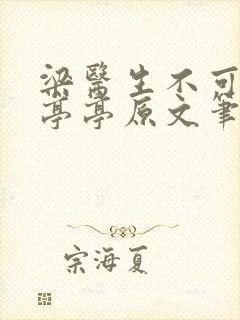 梁醫生不可
亭亭原文筆
宗海夏